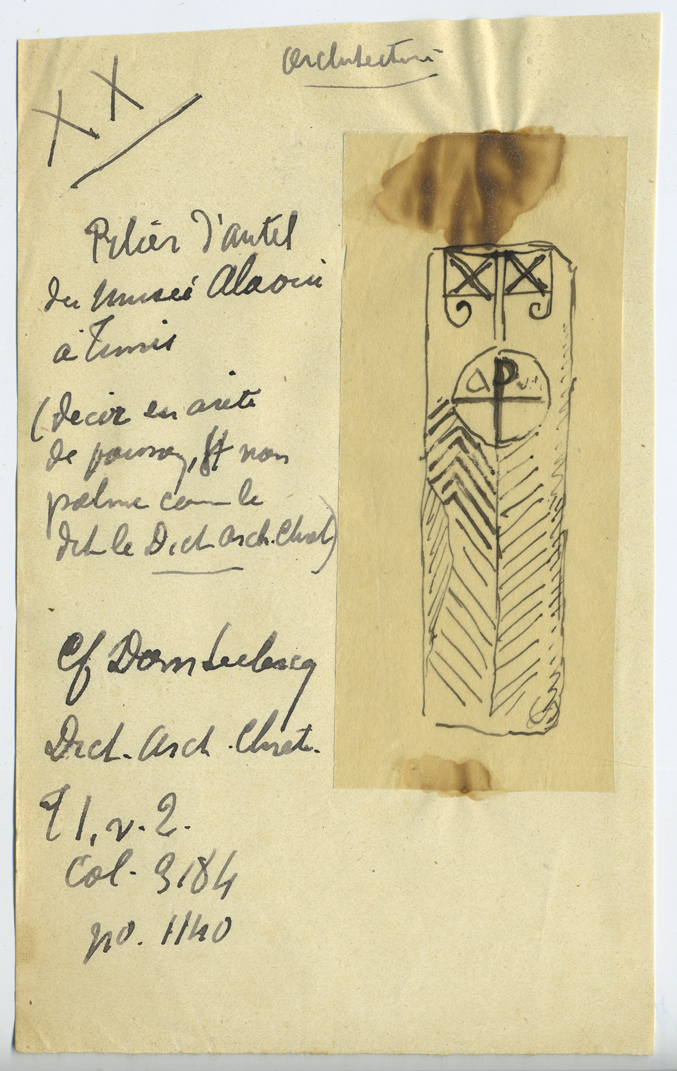 Architecture
XX
Pilier d'autel
du musée Alaoui
à Tunis
(décor en arête
de poisson, et non
palme comme le
dit le Dict Arch. Chret)
α P ω
Cf Dom Leclercq
Dict. Arch. Chret.
T 1, v. 2.
Col. 3184
no. 1140